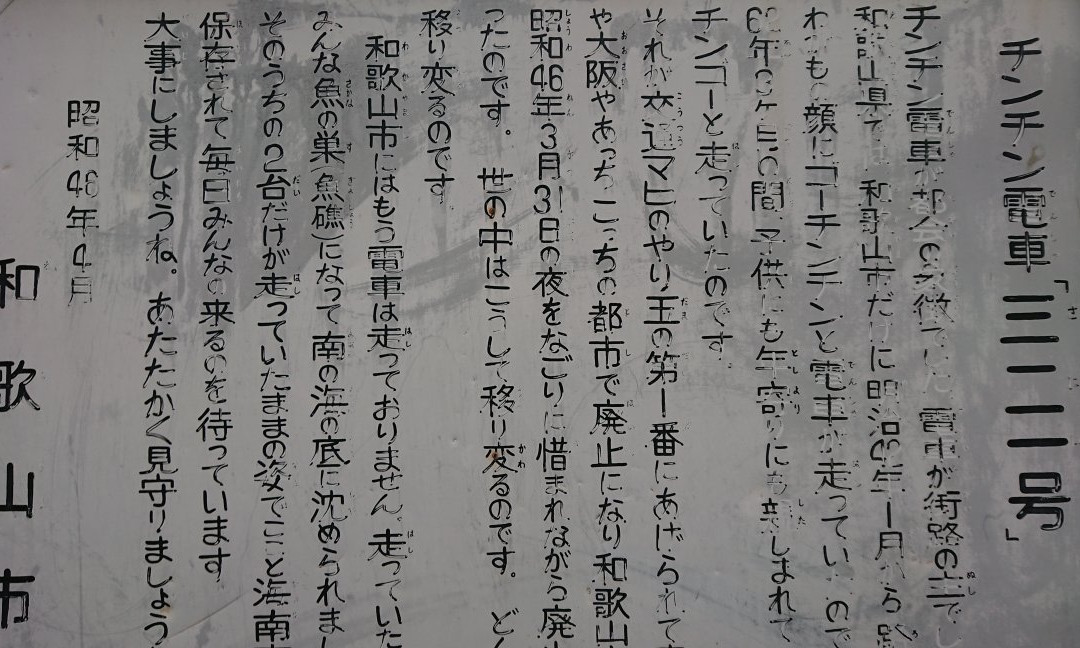 チンチン電車「三二一号」
チンチン電車 都 の象徴でした 電車が街路の主でし
和歌山県で 和歌山市だけに明治42年1月から 路
わがもの顔にゴーチンチンと電車が走ってい ので
62年3ヶ月の間 子供にも年寄りにも親しまれて
チンゴーと走っていたのです
それが交通マヒのやり玉の第1番にあげられて
や大阪やあっちこっちの都市で廃止になり和歌山
昭和46年3月31日の夜をなごりに惜まれながら廃
ったのです。世の中はこうして移り変るのです。どん
移り変るのです
和歌山市にはもう電車は走っておりません。走っていた
みんな魚の巣(魚礁)になって南の海の底に沈められまし
そのうちの2台だけが走っていたままの姿でここと海南
保存されて毎日みんなの来るのを待っています
大事にしましょうね。あたたかく見守りましょう
昭和46年4月
和歌山市